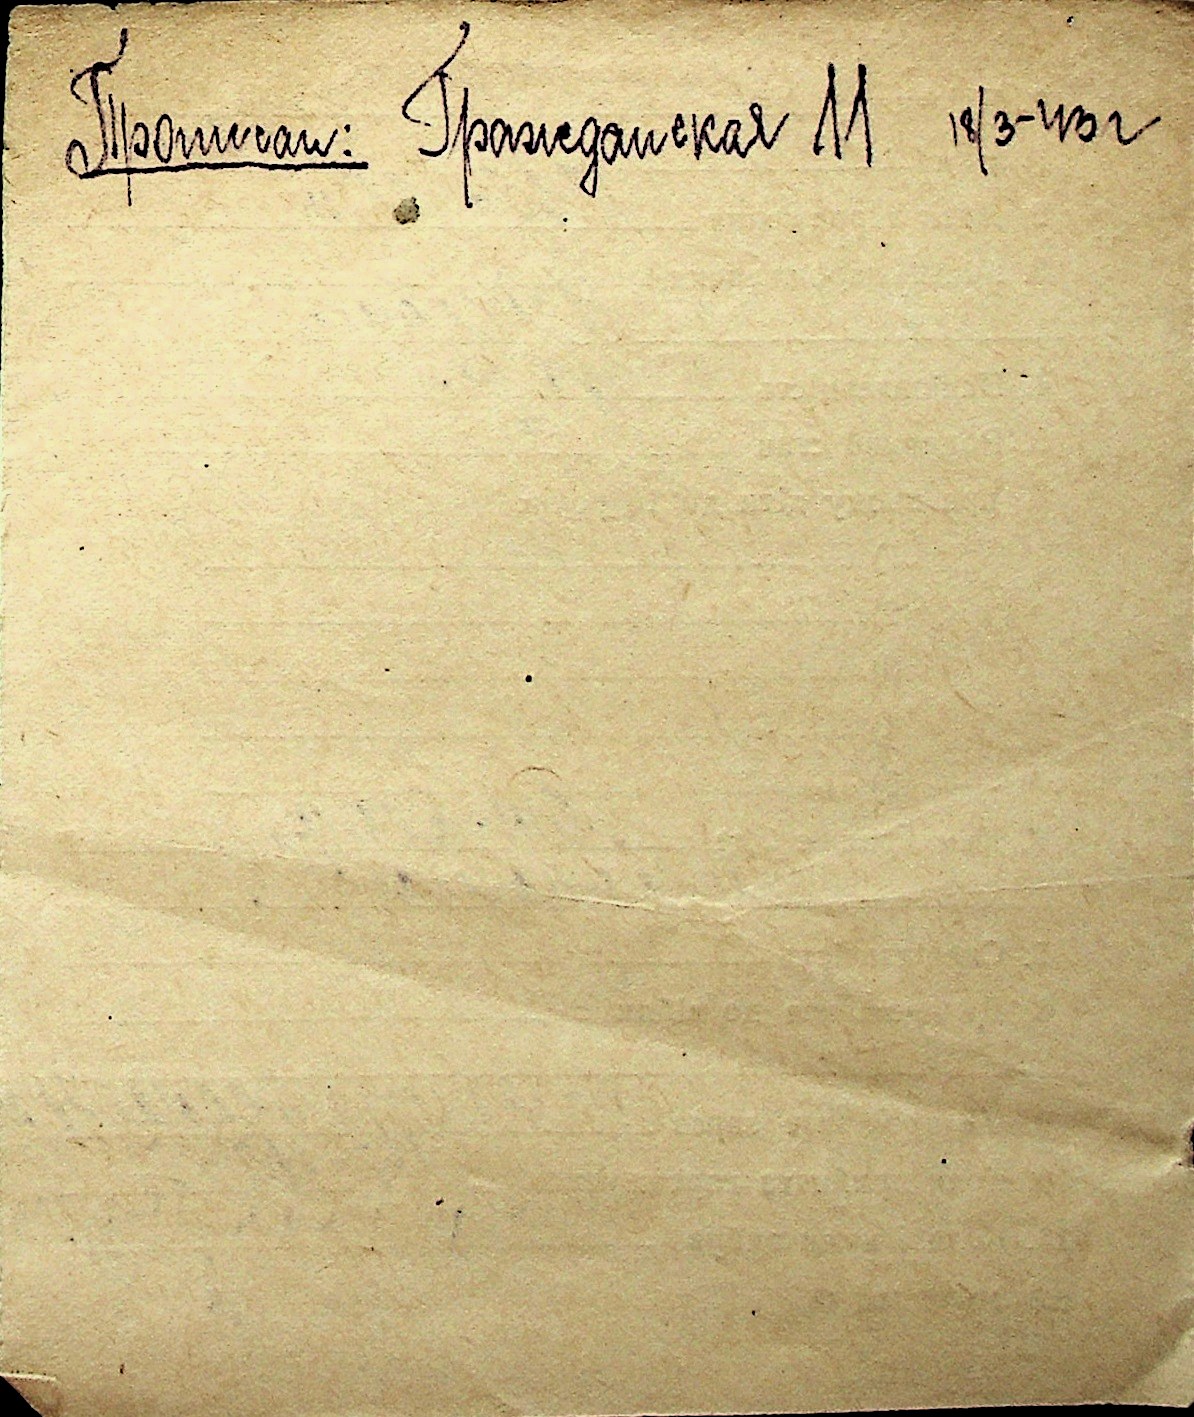 Прописан: Гражданская 11 18/3-43 г